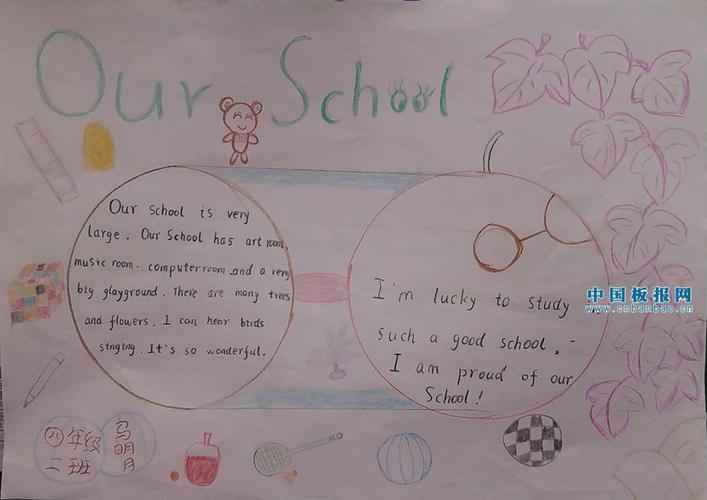 Our School
Our school is very
large. Our School has art room,
music room. computer room and a very
big playground. There are many trees
and flowers. I can hear birds
singing. It's so wonderful.
I'm lucky to study
such a good school.
I am proud of our
School!
四年级
二班
马明月
中国板报网
www.cnbanbao.cn